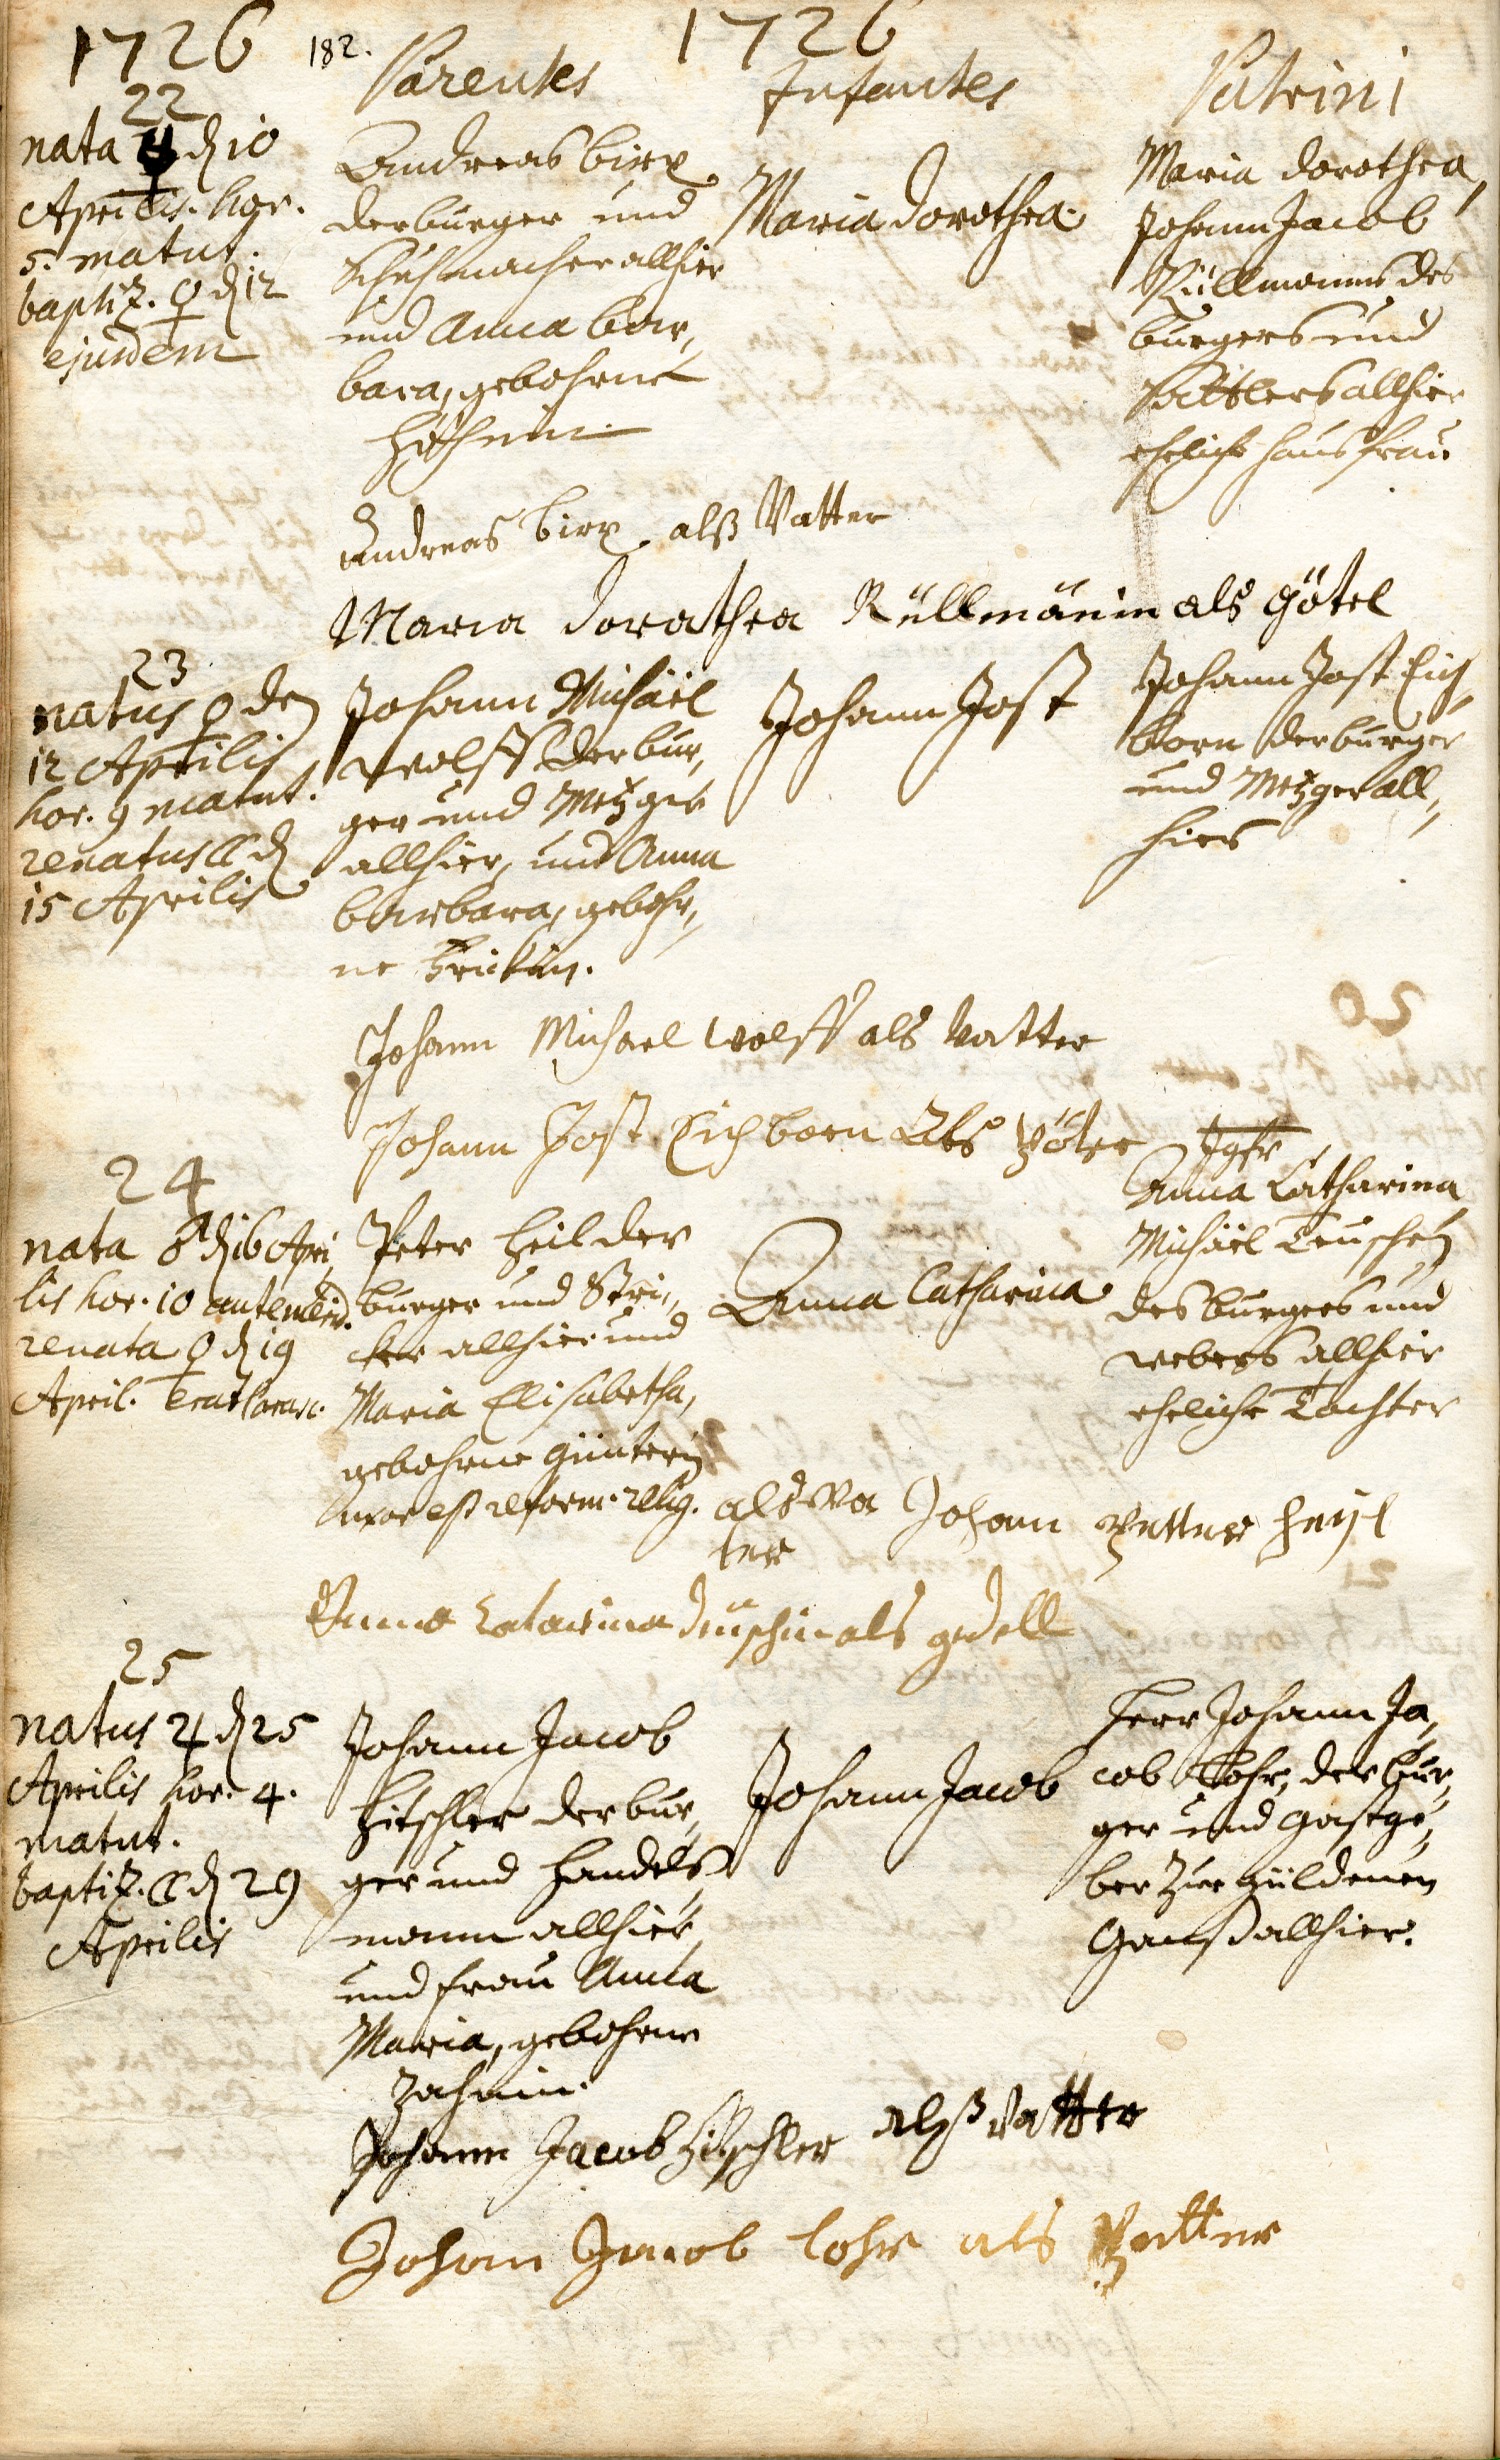 1726 182. 1726
Parentes Infantes Patrini
22
nata d 10
Aprilis. hor.
5. matut.
baptiz. ♀ d 12
ejusdem
Andreas Birx
der burger und
Schuhmacher allhier
und Anna Bar,
bara, gebohrne
Maria Dorothea
Maria Dorothea,
Johann Jacob
Rüllmanns des
burgers und
Sattlers allhier
eheliche Hausfrau
Andreas Birx alß Vatter
Maria Dorathea Rüllmänin als Götel
23
natus ♀ den
12 Aprilis
hor. 9 matut.
renatus ☾ d
15 Aprilis
Johann Michäel
Wolff der bur,
ger und Metzger
allhier, und Anna
Barbara, gebohr,
ne
Johann Jost
Johann Jost Eich,
born der burger
und Metzger all,
hier
Johann Michael Wolff als Vatter
Johann Jost Eichborn Als
24
nata ♂ d 16 Apri
lis hor. 10 antemerid.
renata ♀ d 19
April.
Peter Heil der
burger und Stri,
cker allhier und
Maria Elisabetha,
gebohrne Günterin
uxor est reform. relig.
Anna Catharina
Jgfr
Anna Catharina
Michäel Teuschen
des burgers und
webers allhier
eheliche Tochter
als Va Johann Petter Heyl
ter
Anna Catarina Deuschin als gedell
25
natus ♃ d 25
Aprilis hor. 4.
matut.
baptiz. ☾ d 29
Aprilis
Johann Jacob
Hitschler der bur,
ger und Handels
mann allhier
und Frau Anna
Maria, gebohrne
Zahnin.
Johann Jacob
Herr Johann Ja,
cob Lohr, der bur,
ger und Gastge,
ber zur güldenen
Ganß allhier.
Johann Jacob Hitschler alß Vatter
Johan Jacob Lohr als Petter